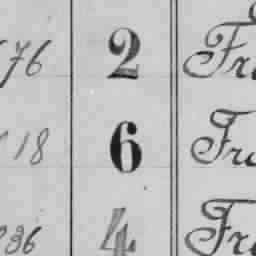 76 2 Fra
18 6 Fra
36 4 Fra